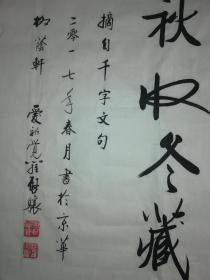 秋收冬藏
摘自千字文句
二零一七年春月书於京華
柳蔭軒
愛新覺羅